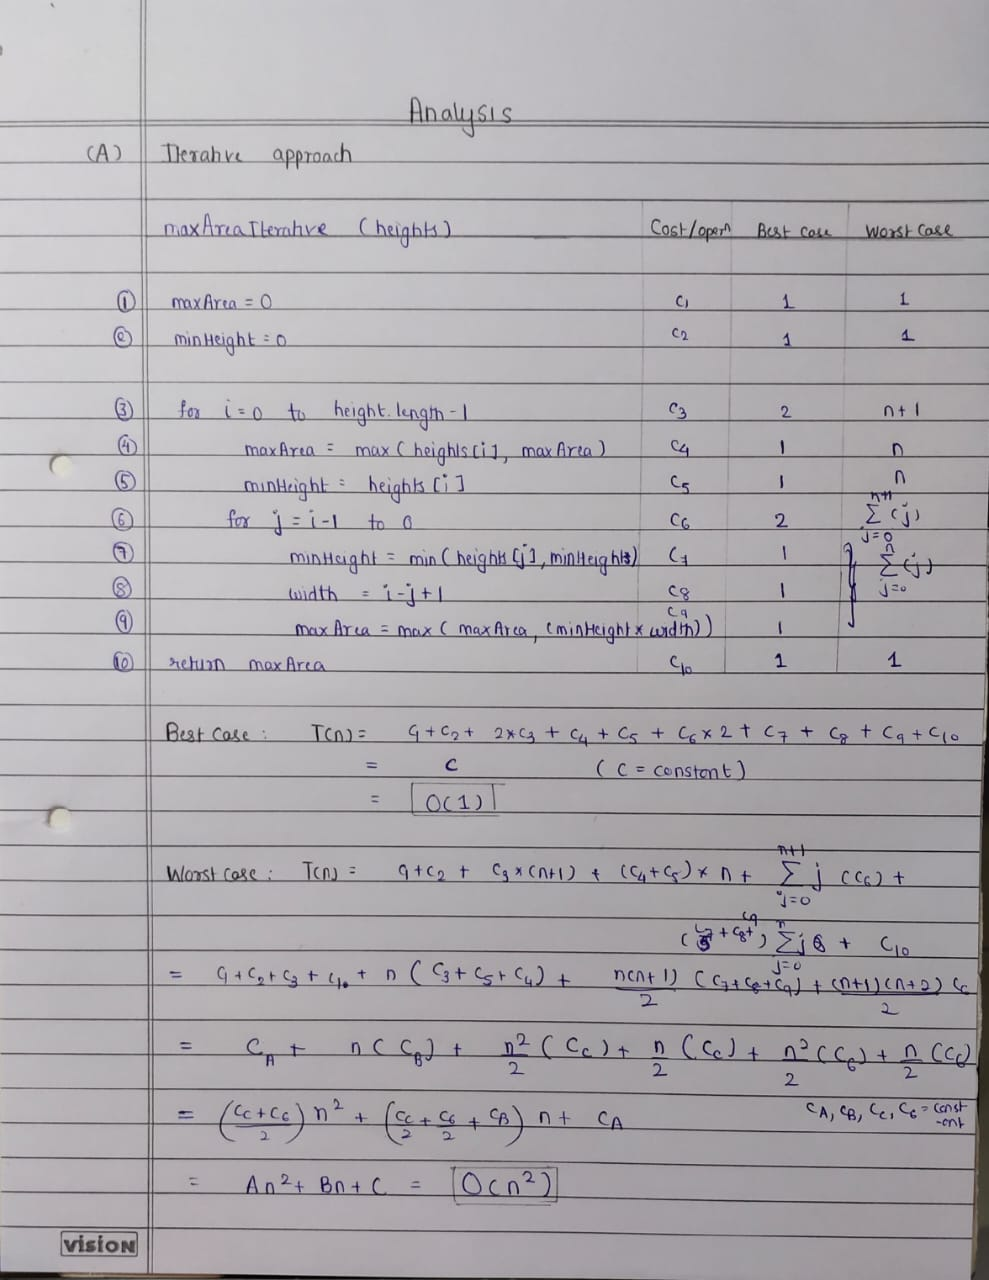 Analysis
(A) Iterative approach
maxAreaIterative (heights) Cost/opern Best case Worst case
① maxArea = 0 C1 1 1
② minHeight = 0 C2 1 1
③ for i = 0 to height.length - 1 C3 2 n+1
④ maxArea = max (heights[i], maxArea) C4 1 n
⑤ minHeight = heights[i] C5 1 n
⑥ for j = i-1 to 0 C6 2 n+1 Σ j=0 (j)
⑦ minHeight = min (heights[j], minHeights) C7 1 n Σ j=0 (j)
⑧ width = i-j+1 C8 1
⑨ maxArea = max ( maxArea, (minHeight x width)) C9 1
⑩ return maxArea C10 1 1
Best case : T(n) = C1 + C2 + 2xC3 + C4 + C5 + C6 x 2 + C7 + C8 + C9 + C10
= C (C = constant)
= O(1)
Worst case : T(n) = C1 + C2 + C3 x (n+1) + (C4+C5) x n + n+1 Σ j=0 j (C6) +
( + C8 + C9) n Σ j=0 j + C10
= C1 + C2 + C3 + C10 + n (C3 + C5 + C4) + n(n+1)/2 (C7+C8+C9) + (n+1)(n+2)/2 C6
= CA + n (CB) + n²/2 (CC) + n/2 (CC) + n²/2 (C6) + n/2 (C6)
= ((CC+C6)/2) n² + (CC/2 + C6/2 + CB) n + CA CA, CB, CC, C6 = const-ant
= An² + Bn + C = O(n²)
vision